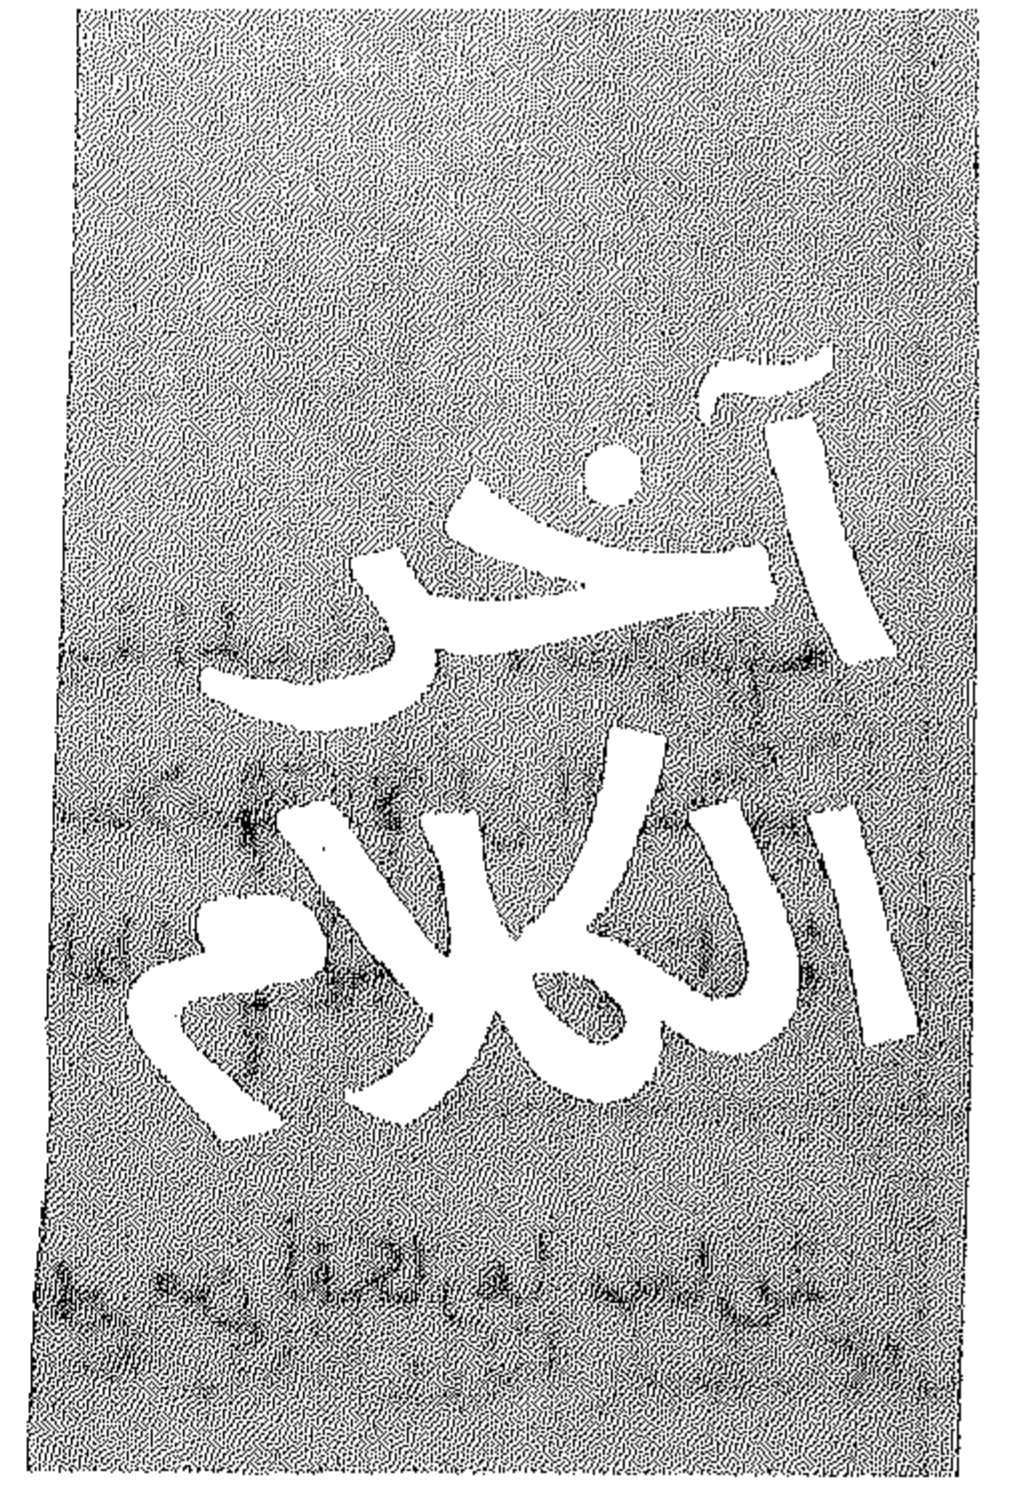 آخر
الكلام